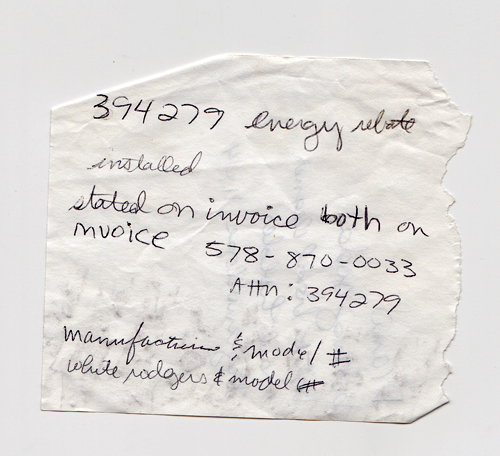 394279 energy rebate
installed
stated on invoice both on
invoice 578-870-0033
Attn: 394279
manufacturer & model #
white rodgers & model #